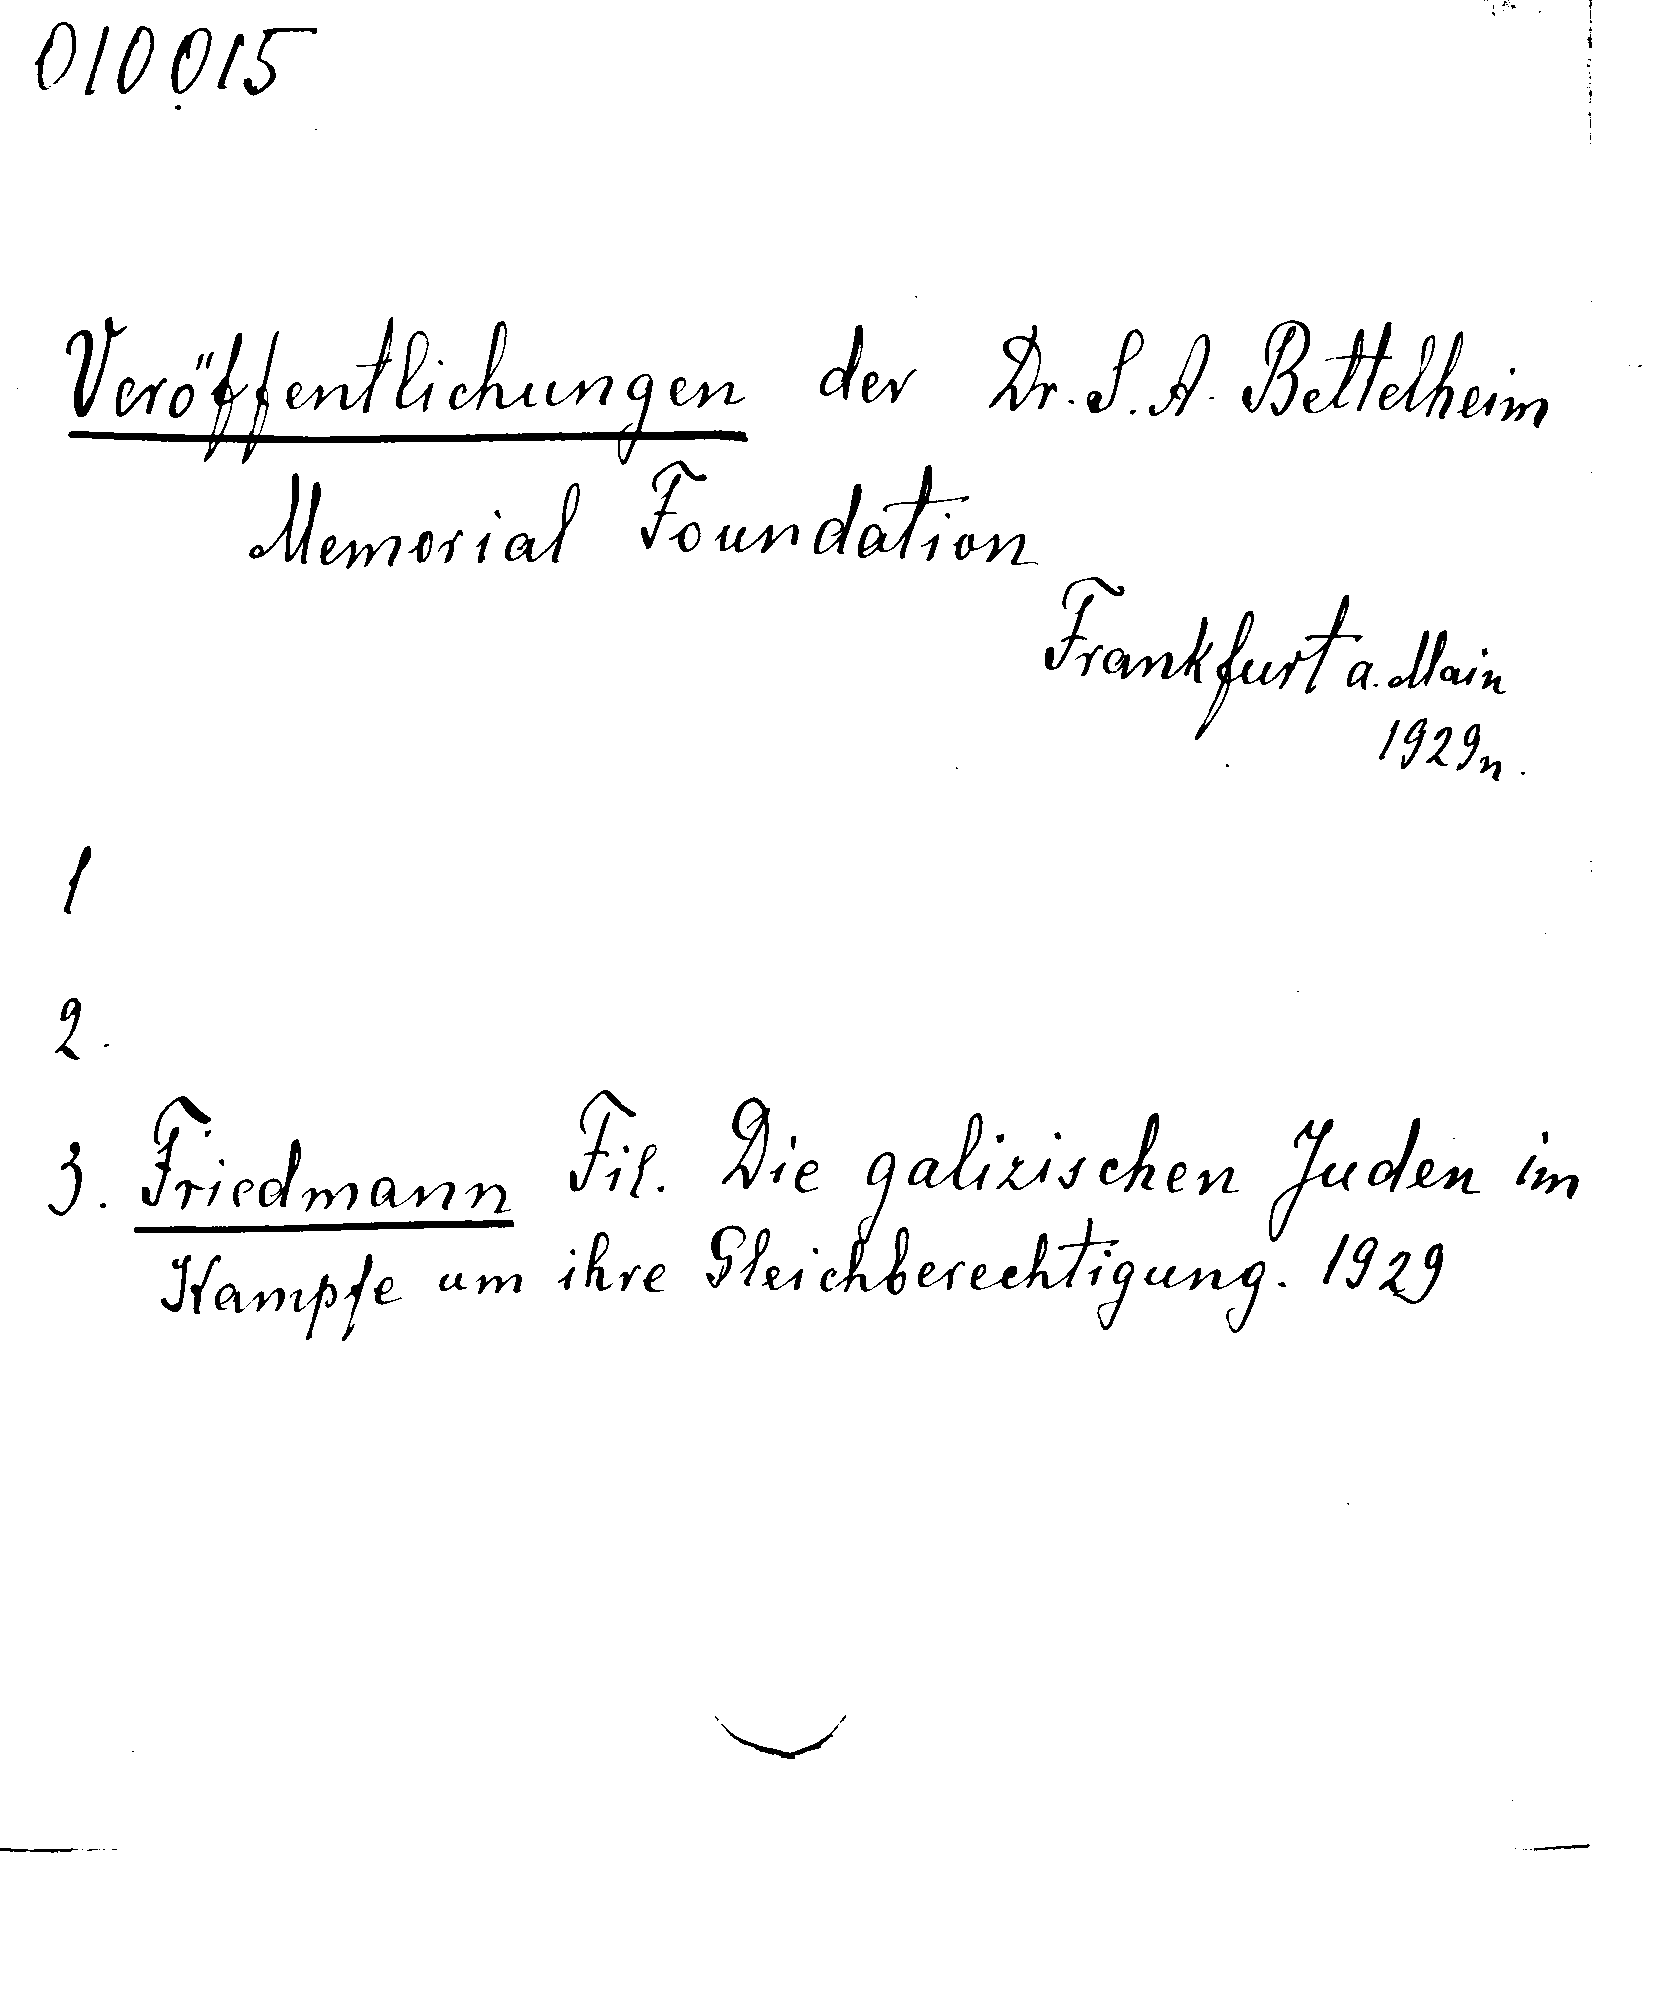 010015
Veröffentlichungen der Dr. S. A. Bettelheim
Memorial Foundation
Frankfurt a. Main
1929n.
1
2.
3. Friedmann Fil. Die galizischen Juden im
Kampfe um ihre Gleichberechtigung. 1929